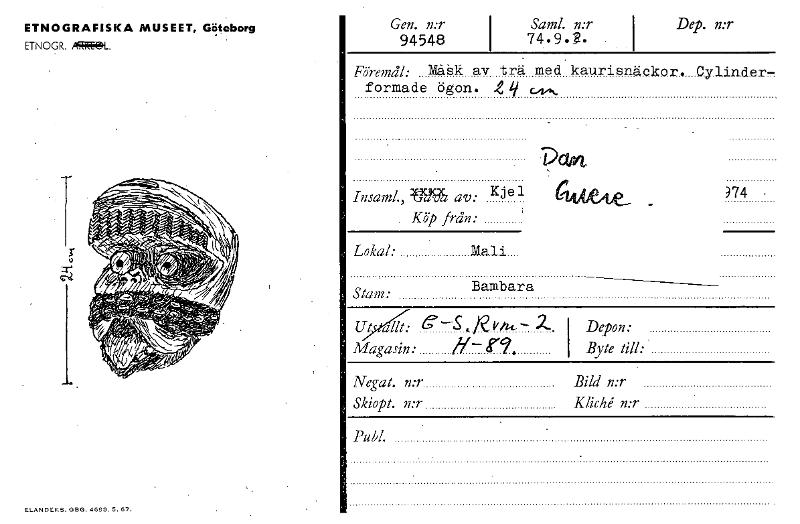 ETNOGRAFISKA MUSEET, Göteborg
ETNOGR. ARKEOL.
24 cm
ELANDERS. GBG. 4699. 5. 67.
Gen. n:r
94548
Saml. n:r
74.9.2.
Dep. n:r
Föremål: Mask av trä med kaurisnäckor. Cylinder-
formade ögon. 24 cm
Dan
Guere.
Insaml., Gåva av: Kjel 974
Köp från:
Lokal: Mali
Stam: Bambara
Utställt: G-S. Rum-2. Depon:
Magasin: H-89. Byte till:
Negat. n:r Bild n:r
Skiopt. n:r Kliché n:r
Publ.